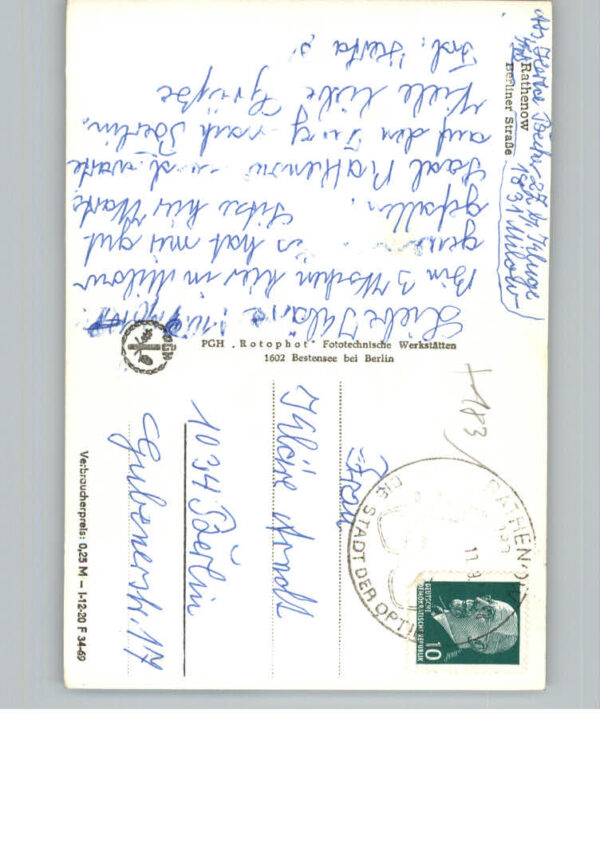 Rathenow
Berliner Straße
1831 Milow
Liebe Kläre!
Bin 3 Wochen hier in Milow
gewesen. Es hat mir gut
gefallen. Sitze hier Warte
Saal Rathenow und warte
auf den Zug nach Berlin.
Viele liebe Grüße
Frl. Herta
PGH „Rotophot" Fototechnische Werkstätten
1602 Bestensee bei Berlin
PGH
Frau
Kläre Arndt
1034 Berlin
Gubenerstr. 17
Verbraucherpreis: 0,25 M — I-12-20 F 34-69
RATHENOW
DIE STADT DER OPTIK
DEUTSCHE
DEMOKRATISCHE REPUBLIK
10